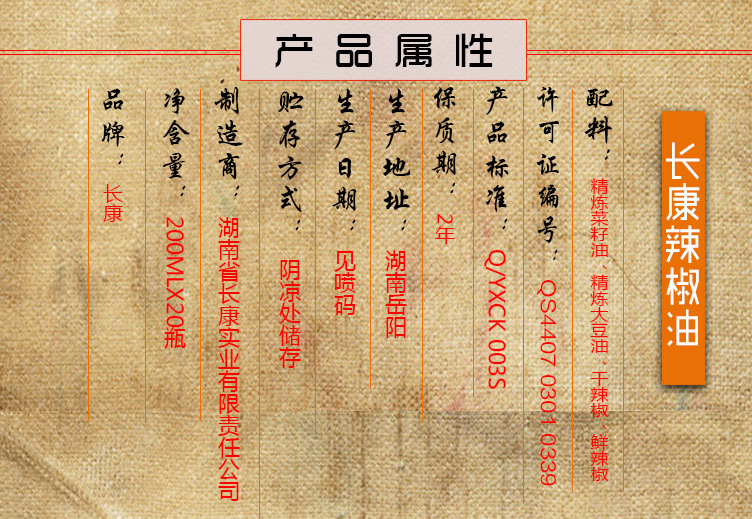 产品属性
长康辣椒油
配料：精炼菜籽油、精炼大豆油、干辣椒、鲜辣椒
许可证编号：QS4407 0301 0339
产品标准：Q/YXCK 003S
保质期：2年
生产地址：湖南岳阳
生产日期：见喷码
贮存方式：阴凉处储存
制造商：湖南省长康实业有限责任公司
净含量：200MLX20瓶
品牌：长康